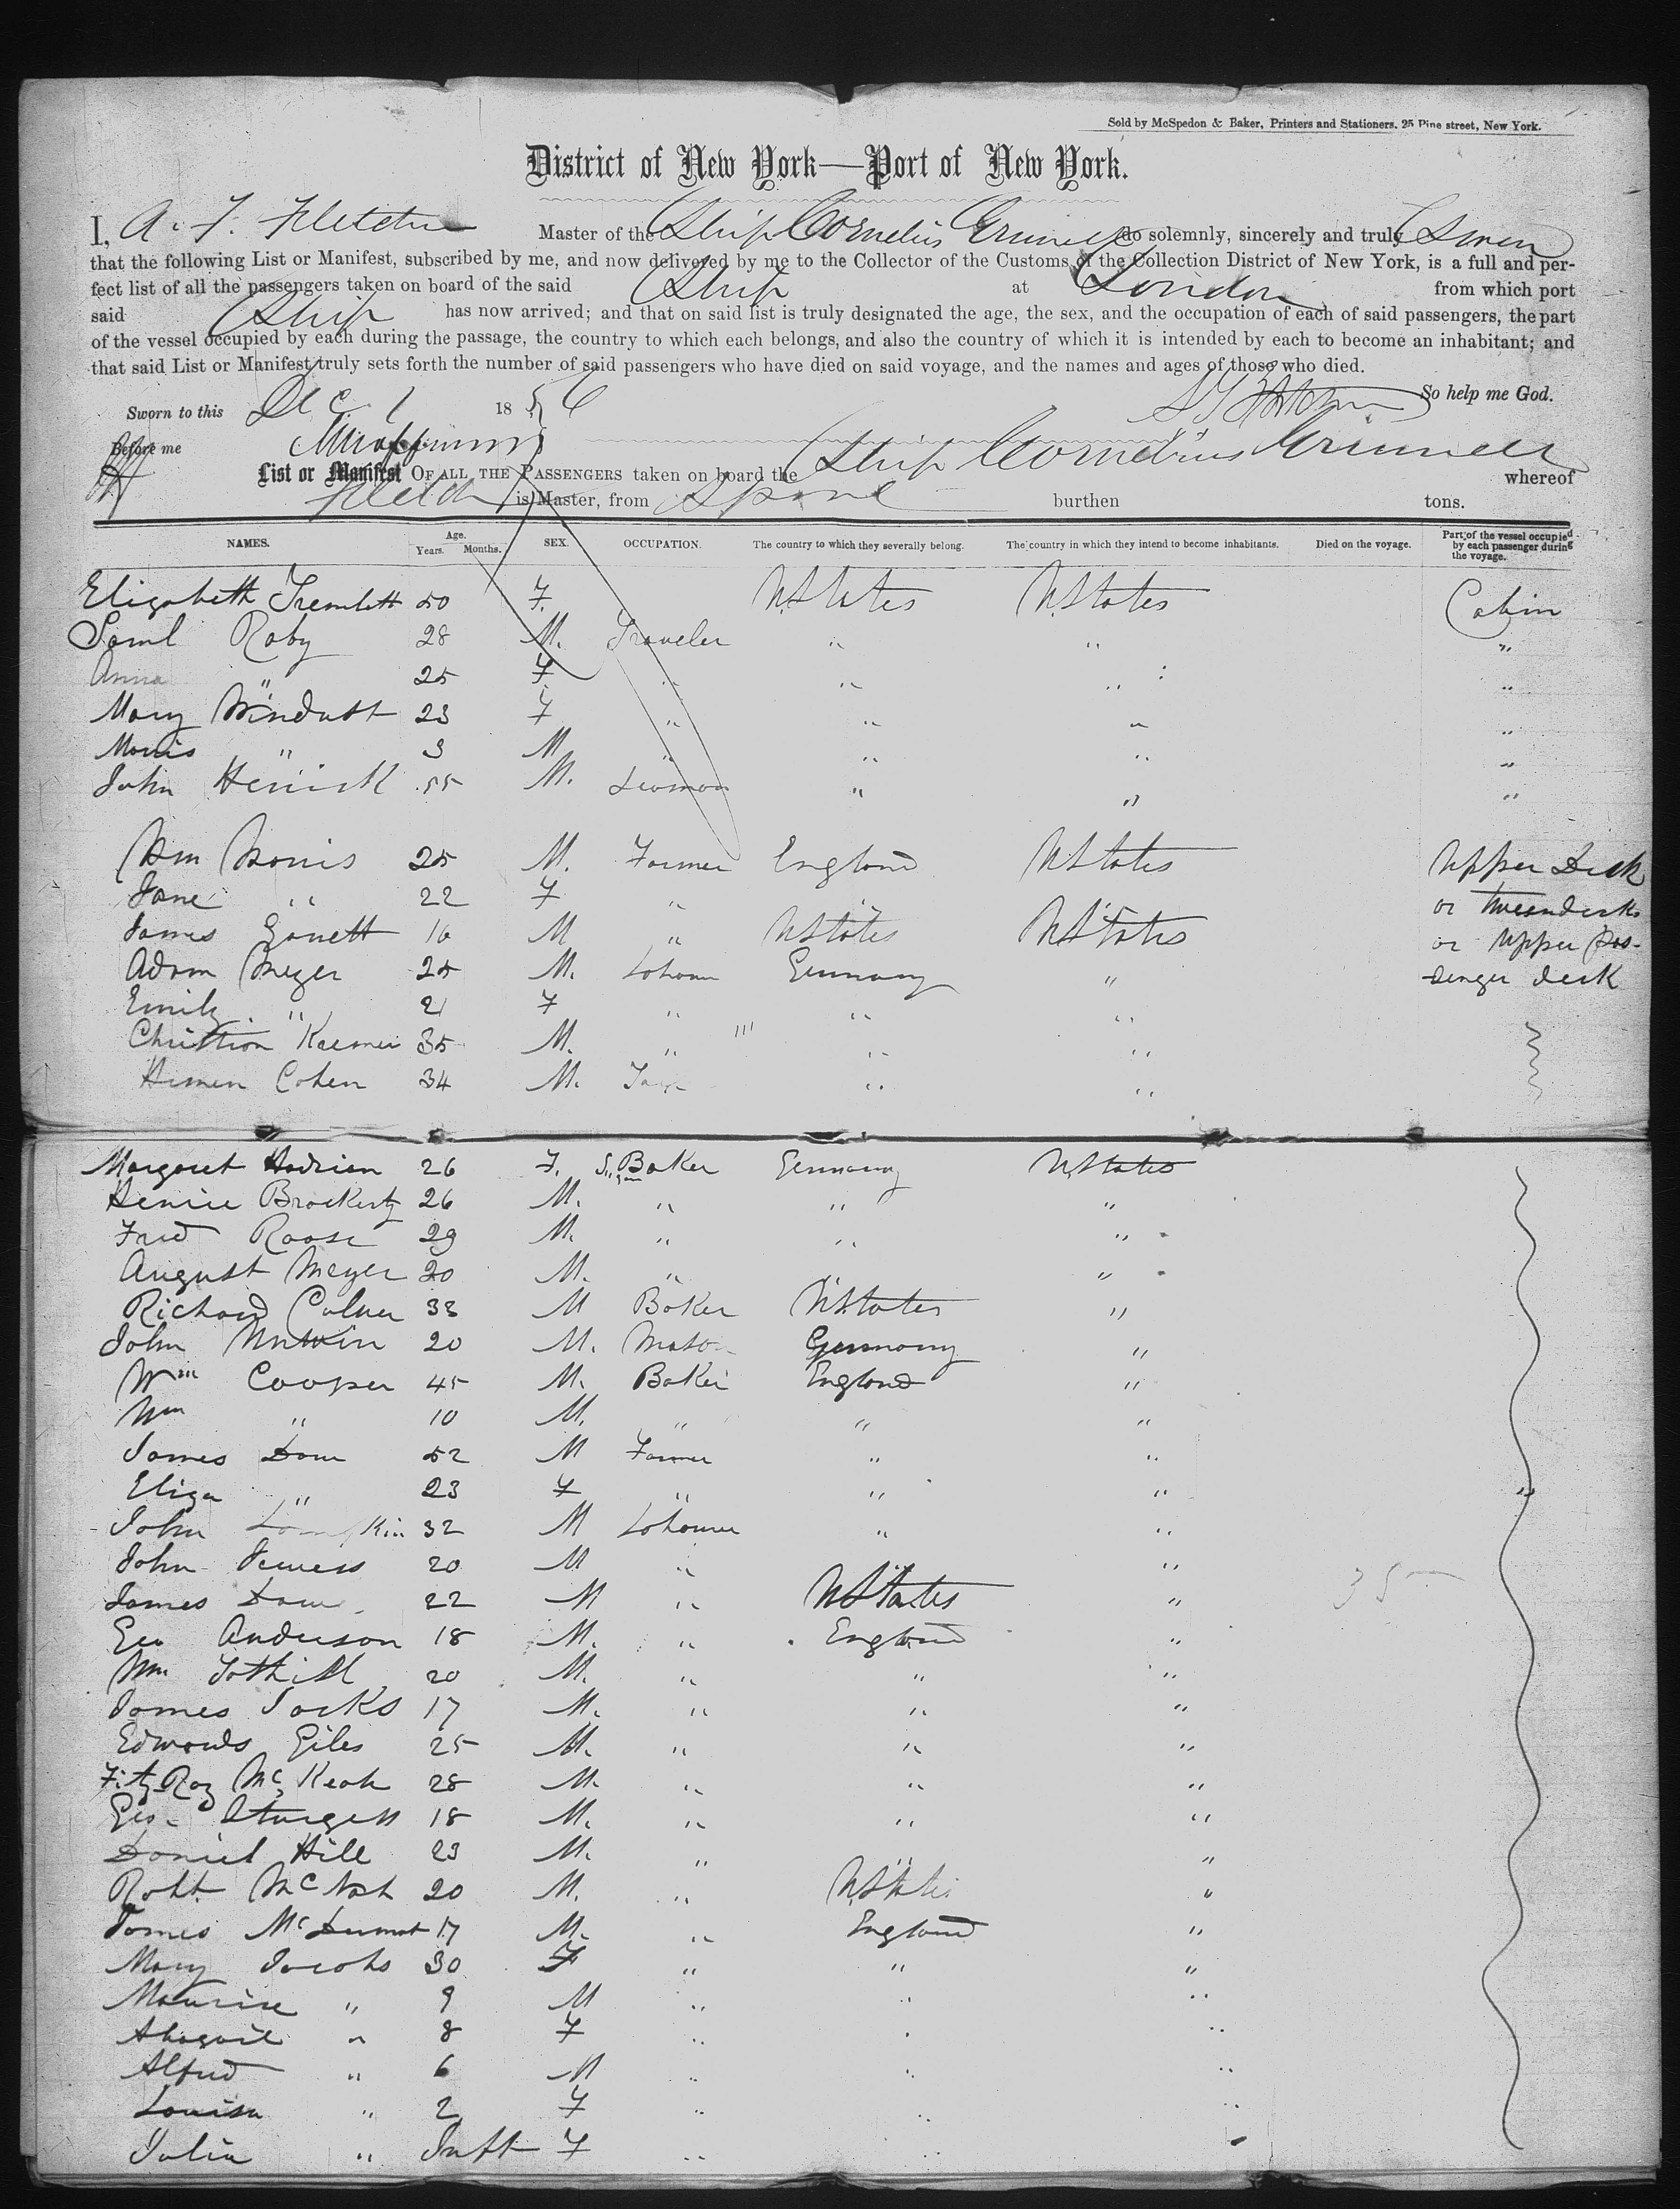 Sold by McSpedon & Baker, Printers and Stationers, 25 Pine street, New York.
District of New York—Port of New York.
I, A. F. Fletcher Master of the Ship Cornelius Grinnell do solemnly, sincerely and truly Swear
that the following List or Manifest, subscribed by me, and now delivered by me to the Collector of the Customs of the Collection District of New York, is a full and per-
fect list of all the passengers taken on board of the said Ship at London from which port
said Ship has now arrived; and that on said list is truly designated the age, the sex, and the occupation of each of said passengers, the part
of the vessel occupied by each during the passage, the country to which each belongs, and also the country of which it is intended by each to become an inhabitant; and
that said List or Manifest truly sets forth the number of said passengers who have died on said voyage, and the names and ages of those who died.
So help me God.
Sworn to this Dec 1 1856
Before me
List or Manifest OF ALL THE PASSENGERS taken on board the Ship Cornelius Grinnell whereof
Fletcher is Master, from burthen tons.
NAMES. Age. Years. Months. SEX. OCCUPATION. The country to which they severally belong. The country in which they intend to become inhabitants. Died on the voyage. Part of the vessel occupied by each passenger during the voyage.
Elizabeth Tremlett 50 F. U.States U.States Cabin
Saml Roby 28 M. Traveler " " "
Anna " 25 F " " " "
Mary Windust 23 F " " " "
Morris " 3 M " " " "
John Herrick 55 M. Seaman " " "
Wm Norris 25 M. Farmer England U.States Upper Deck
Jane " 22 F " " " or Tweendecks
James Garrett 16 M " U.States U.States or Upper Pas-
Adam Meyer 25 M. Labourer Germany " senger deck
Emily " 21 F " " "
Christian Kaemer 35 M. " " "
Himen Cohen 34 M. " "
Margaret Hadrian 26 F. Baker Germany U.States
Henrie Brockertz 26 M. " " "
Fred Roose 29 M. " " "
August Meyer 20 M. " " "
Richard Culver 33 M Baker U.States "
John Unwin 20 M. Mason Germany "
Wm Cooper 45 M. Baker England "
Wm " 10 M. " " "
James Dow 52 M Farmer " "
Eliza " 23 F " " " "
John Lampkin 32 M Labourer " "
John Jewess 20 M " " "
James Dow 22 M " U.States " 35
Geo Anderson 18 M. " England "
Wm Tothill 20 M. " " "
James Jacks 17 M. " " "
Edwards Giles 25 M. " " "
Fitz Roy McKeak 28 M. " " "
Geo. Sturgess 18 M. " " "
Daniel Hill 23 M. " " "
Robt McNab 20 M. " U.States "
James McDermot 17 M. " England "
Mary Jacobs 30 F " " "
Maurice " 9 M " " "
Abagail " 8 F " " "
Alfred " 6 M " " "
Louisa " 2 F " " "
Julia " Inft F " " "